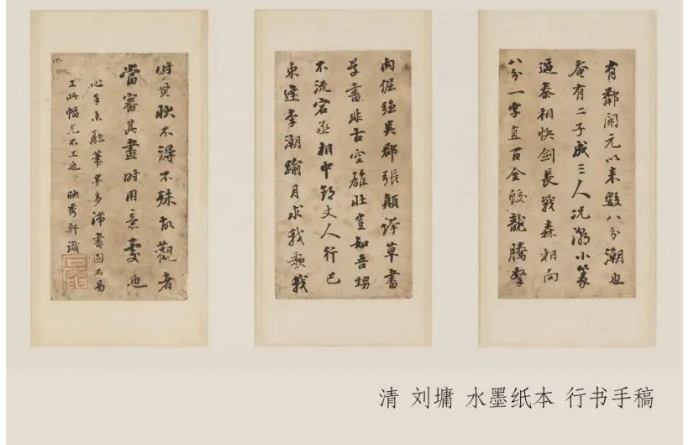 有鄰開元以来數八分潮也
奄有二子成三人况潮小篆
逼秦相快劍長戟森相向
八分一字直百金蛟龍騰拏
肉倔強吳郡張顛誇草書
草書非古空雄壯豈如吾甥
不流宕丞相中郎丈人行巴
東逢李潮踰月求我歌我
秋不得不殊故觀者
當審其畫時用意處也
心手未融筆墨多滯書固不易
工此幅尤不工也 映秀軒識
清 刘墉 水墨纸本 行书手稿